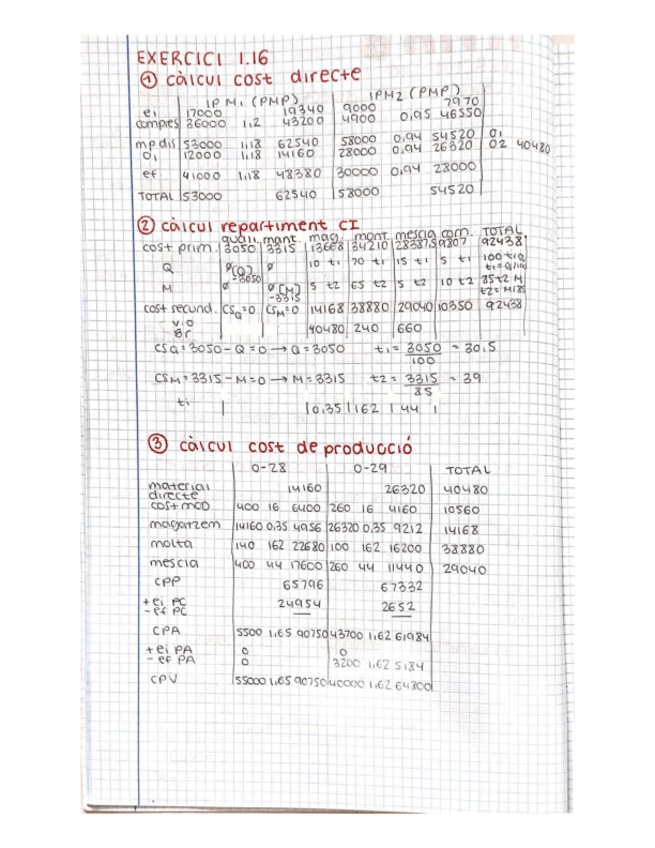 EXERCICI 1.16
① càlcul cost directe
IPM1 (PMP) IPM2 (PMP)
ei 17000 19340 9000 7970
compres 36000 1,2 43200 4900 0,95 46550
mp dis 53000 1,18 62540 58000 0,94 54520 01
01 12000 1,18 14160 28000 0,94 26320 02 40480
ef 41000 1,18 48380 30000 0,94 28000
TOTAL 53000 62540 58000 54520
② càlcul repartiment CI
quali. mant. mag. mont. mescla com. TOTAL
cost prim. 3050 3315 13668 34210 28387,5 9807 92438
Q ø(Q) ø 10 t1 70 t1 15 t1 5 t1 100 t1 Q
-3050 t1=Q/100
M ø ø(M) 5 t2 65 t2 5 t2 10 t2 85 t2 M
-3315 t2=M/85
cost secund. CSQ=0 CSM=0 14168 38880 29040 10350 92438
40480 240 660
CSQ = 3050 - Q = 0 → Q = 3050 t1 = 3050/100 = 30,5
CSM = 3315 - M = 0 → M = 3315 t2 = 3315/85 = 39
ti 0,35 162 44
③ càlcul cost de producció
0-28 0-29 TOTAL
material directe 14160 26320 40480
cost MOD 400 16 6400 260 16 4160 10560
magatzem 14160 0,35 4956 26320 0,35 9212 14168
molta 140 162 22680 100 162 16200 38880
mescla 400 44 17600 260 44 11440 29040
CPP 65796 67332
+ ei PC 24954 2652
- ef PC — —
CPA 5500 1,65 90750 43700 1,62 61984
+ ei PA 0 0
- ef PA 0 3200 1,62 5184
CPV 55000 1,65 90750 40000 1,62 64800